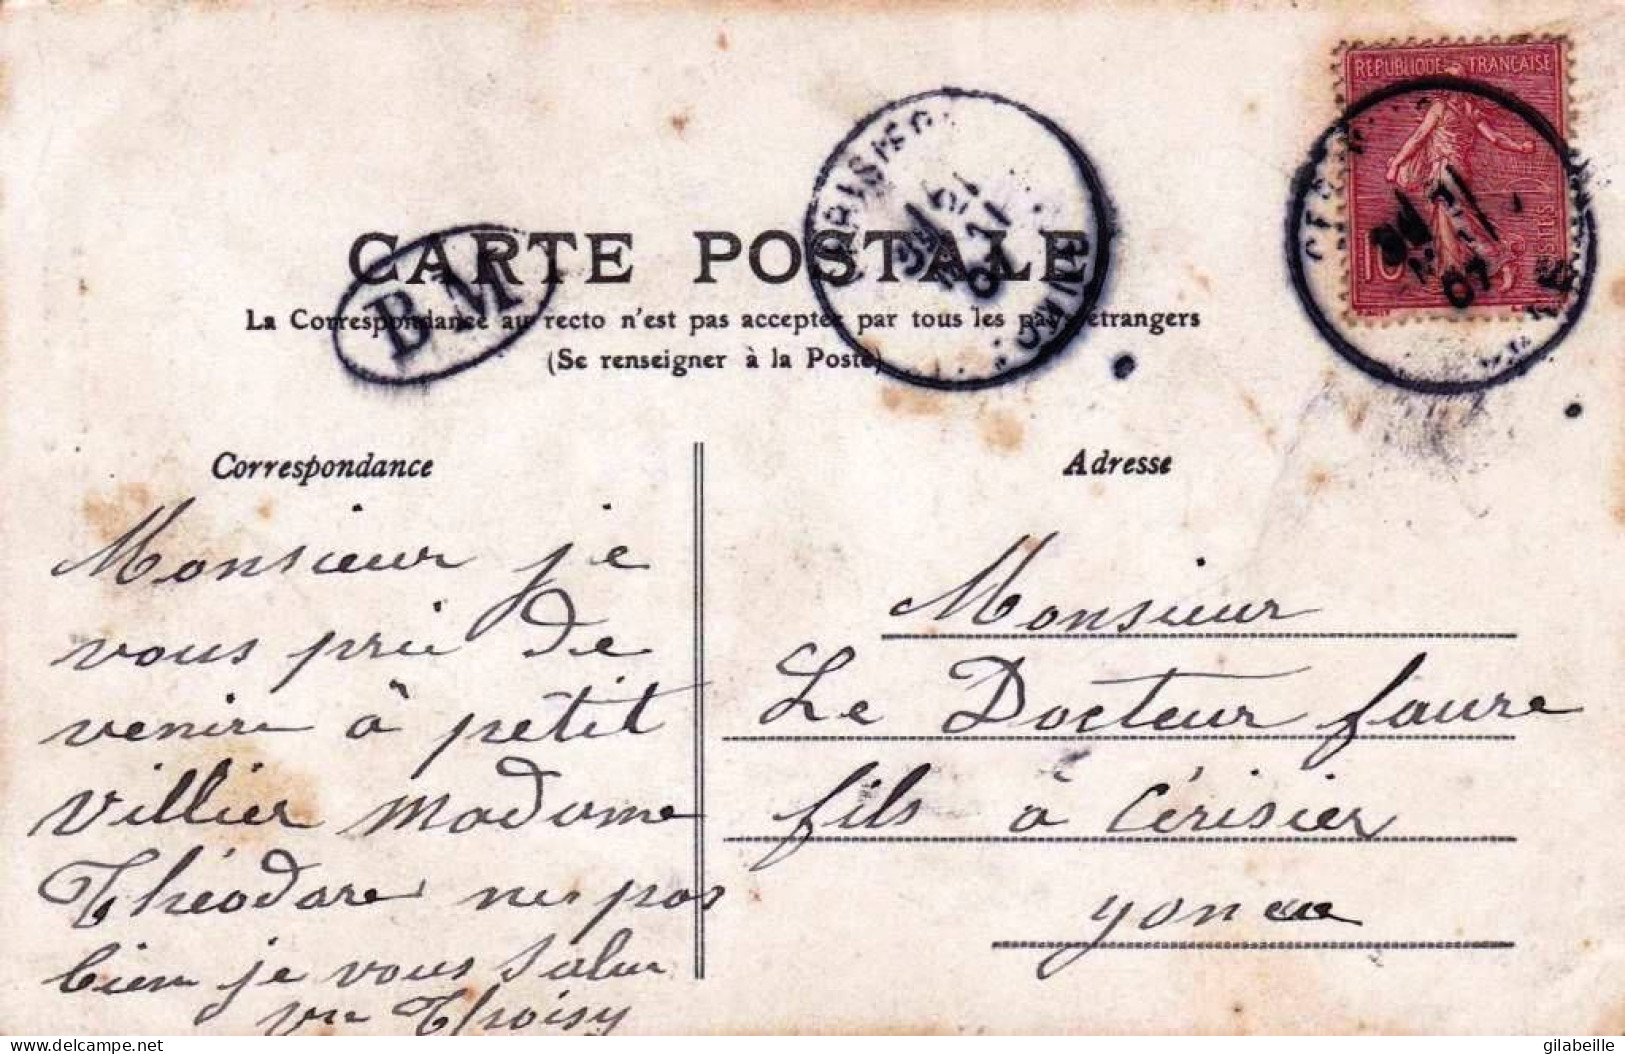 REPUBLIQUE FRANÇAISE
10
POSTES
CERISIERS
07
YONNE
BM
CARTE POSTALE
La Correspondance au recto n'est pas acceptée par tous les pays étrangers
(Se renseigner à la Poste)
Correspondance
Monsieur je
vous prie de
venir à petit
villier madame
Théodore ne pas
bien je vous salue
Adresse
Monsieur
Le Docteur faure
fils à Cérisier
yonne
delcampe.net
gilabeille